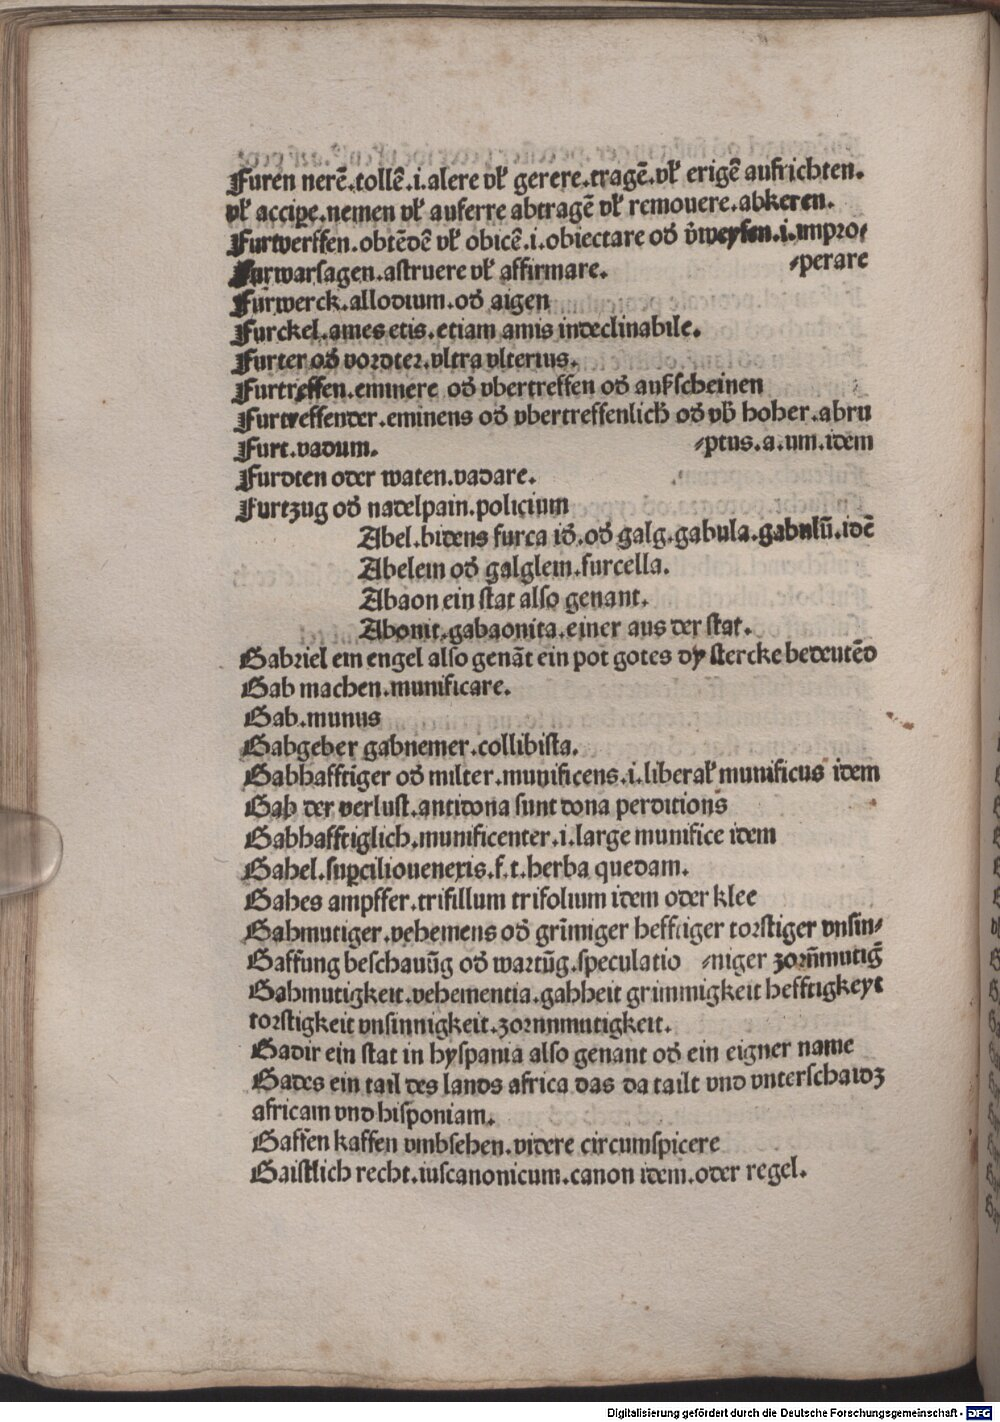 Furen nerē.tollē.i.alere vł gerere.tragē.vł erigē aufrichten.
vł accipe.nemen vł auferre abtragē vł remouere.abkeren.
Furwerffen.obtēdē vł obicē.i.obiectare od v̄weysen.i.impro⸗
Furwarsagen.astruere vł affirmare. ⸗perare
Furwerck.allodium.od aigen
Furckel.ames etis.etiam amis indeclinabile.
Furter od vordter.vltra vlterius.
Furtreffen.eminere od vbertreffen od aufscheinen
Furtreffender.eminens od vbertreffenlich od vb hoher.abru
Furt.vadum. ⸗ptus.a.um.idem
Furdten oder waten.vadare.
Furtzug od nadelpain.policium
Abel.bidens furca id.od galg.gabula.gabulū.idē
Abelein od galglein.furcella.
Abaon ein stat also genant.
Abonit.gabaonita.einer aus der stat.
Gabriel ein engel also genāt ein pot gotes dy stercke bedeutēd
Gab machen.munificare.
Gab.munus
Gabgeber gabnemer.collibista.
Gabhafftiger od milter.munificens.i.liberał munificus idem
Gab der verlust.antidona sunt dona perditions
Gabhafftiglich.munificenter.i.large munifice idem
Gahel.supcilioueneris.f.t.herba quedam.
Gahes ampffer.trifillum trifolium idem oder klee
Gahmutiger.vehemens od grīmiger hefftiger torstiger vnsin⸗
Gaffung beschauūg od wartūg.speculatio ⸗niger zorn̄mutig
Gahmutigkeit.vehementia.gahheit grimmigkeit hefftigkeyt
torstigkeit vnsinnigkeit.zornnmutigkeit.
Gadir ein stat in hyspania also genant od ein eigner name
Gades ein tail des lands africa das da tailt vnd vnterschaidz
africam vnd hisponiam.
Gaffen kaffen vmbsehen.videre circumspicere
Gaistlich recht.iuscanonicum.canon idem.oder regel.
Digitalisierung gefördert durch die Deutsche Forschungsgemeinschaft - DFG